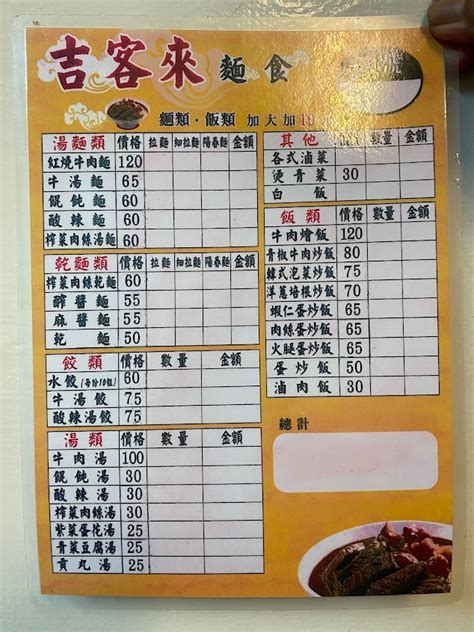 吉客來 麵食
麵類．飯類 加大加10
湯麵類 價格 拉麵 細拉麵 陽春麵 金額
紅燒牛肉麵 120
牛湯麵 65
餛飩麵 60
酸辣麵 60
榨菜肉絲湯麵 60
乾麵類 價格 拉麵 細拉麵 陽春麵 金額
榨菜肉絲乾麵 60
醡醬麵 55
麻醬麵 55
乾麵 50
餃類 價格 數量 金額
水餃(每份10粒) 60
牛湯餃 75
酸辣湯餃 75
湯類 價格 數量 金額
牛肉湯 100
餛飩湯 30
酸辣湯 30
榨菜肉絲湯 30
紫菜蛋花湯 25
青菜豆腐湯 25
貢丸湯 25
其他 價格 數量 金額
各式滷菜
燙青菜 30
白飯
飯類 價格 數量 金額
牛肉燴飯 120
青椒牛肉炒飯 80
韓式泡菜炒飯 75
洋蔥培根炒飯 70
蝦仁蛋炒飯 65
肉絲蛋炒飯 65
火腿蛋炒飯 65
蛋炒飯 50
滷肉飯 30
總計